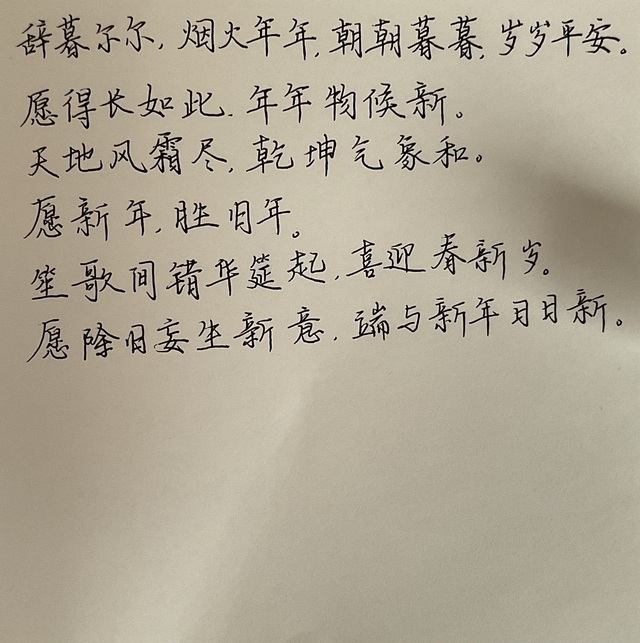 辞暮尔尔,烟火年年,朝朝暮暮,岁岁平安。
愿得长如此.年年物候新。
天地风霜尽,乾坤气象和。
愿新年,胜旧年。
笙歌间错华筵起,喜迎春新岁。
愿除旧妄生新意,端与新年日日新。